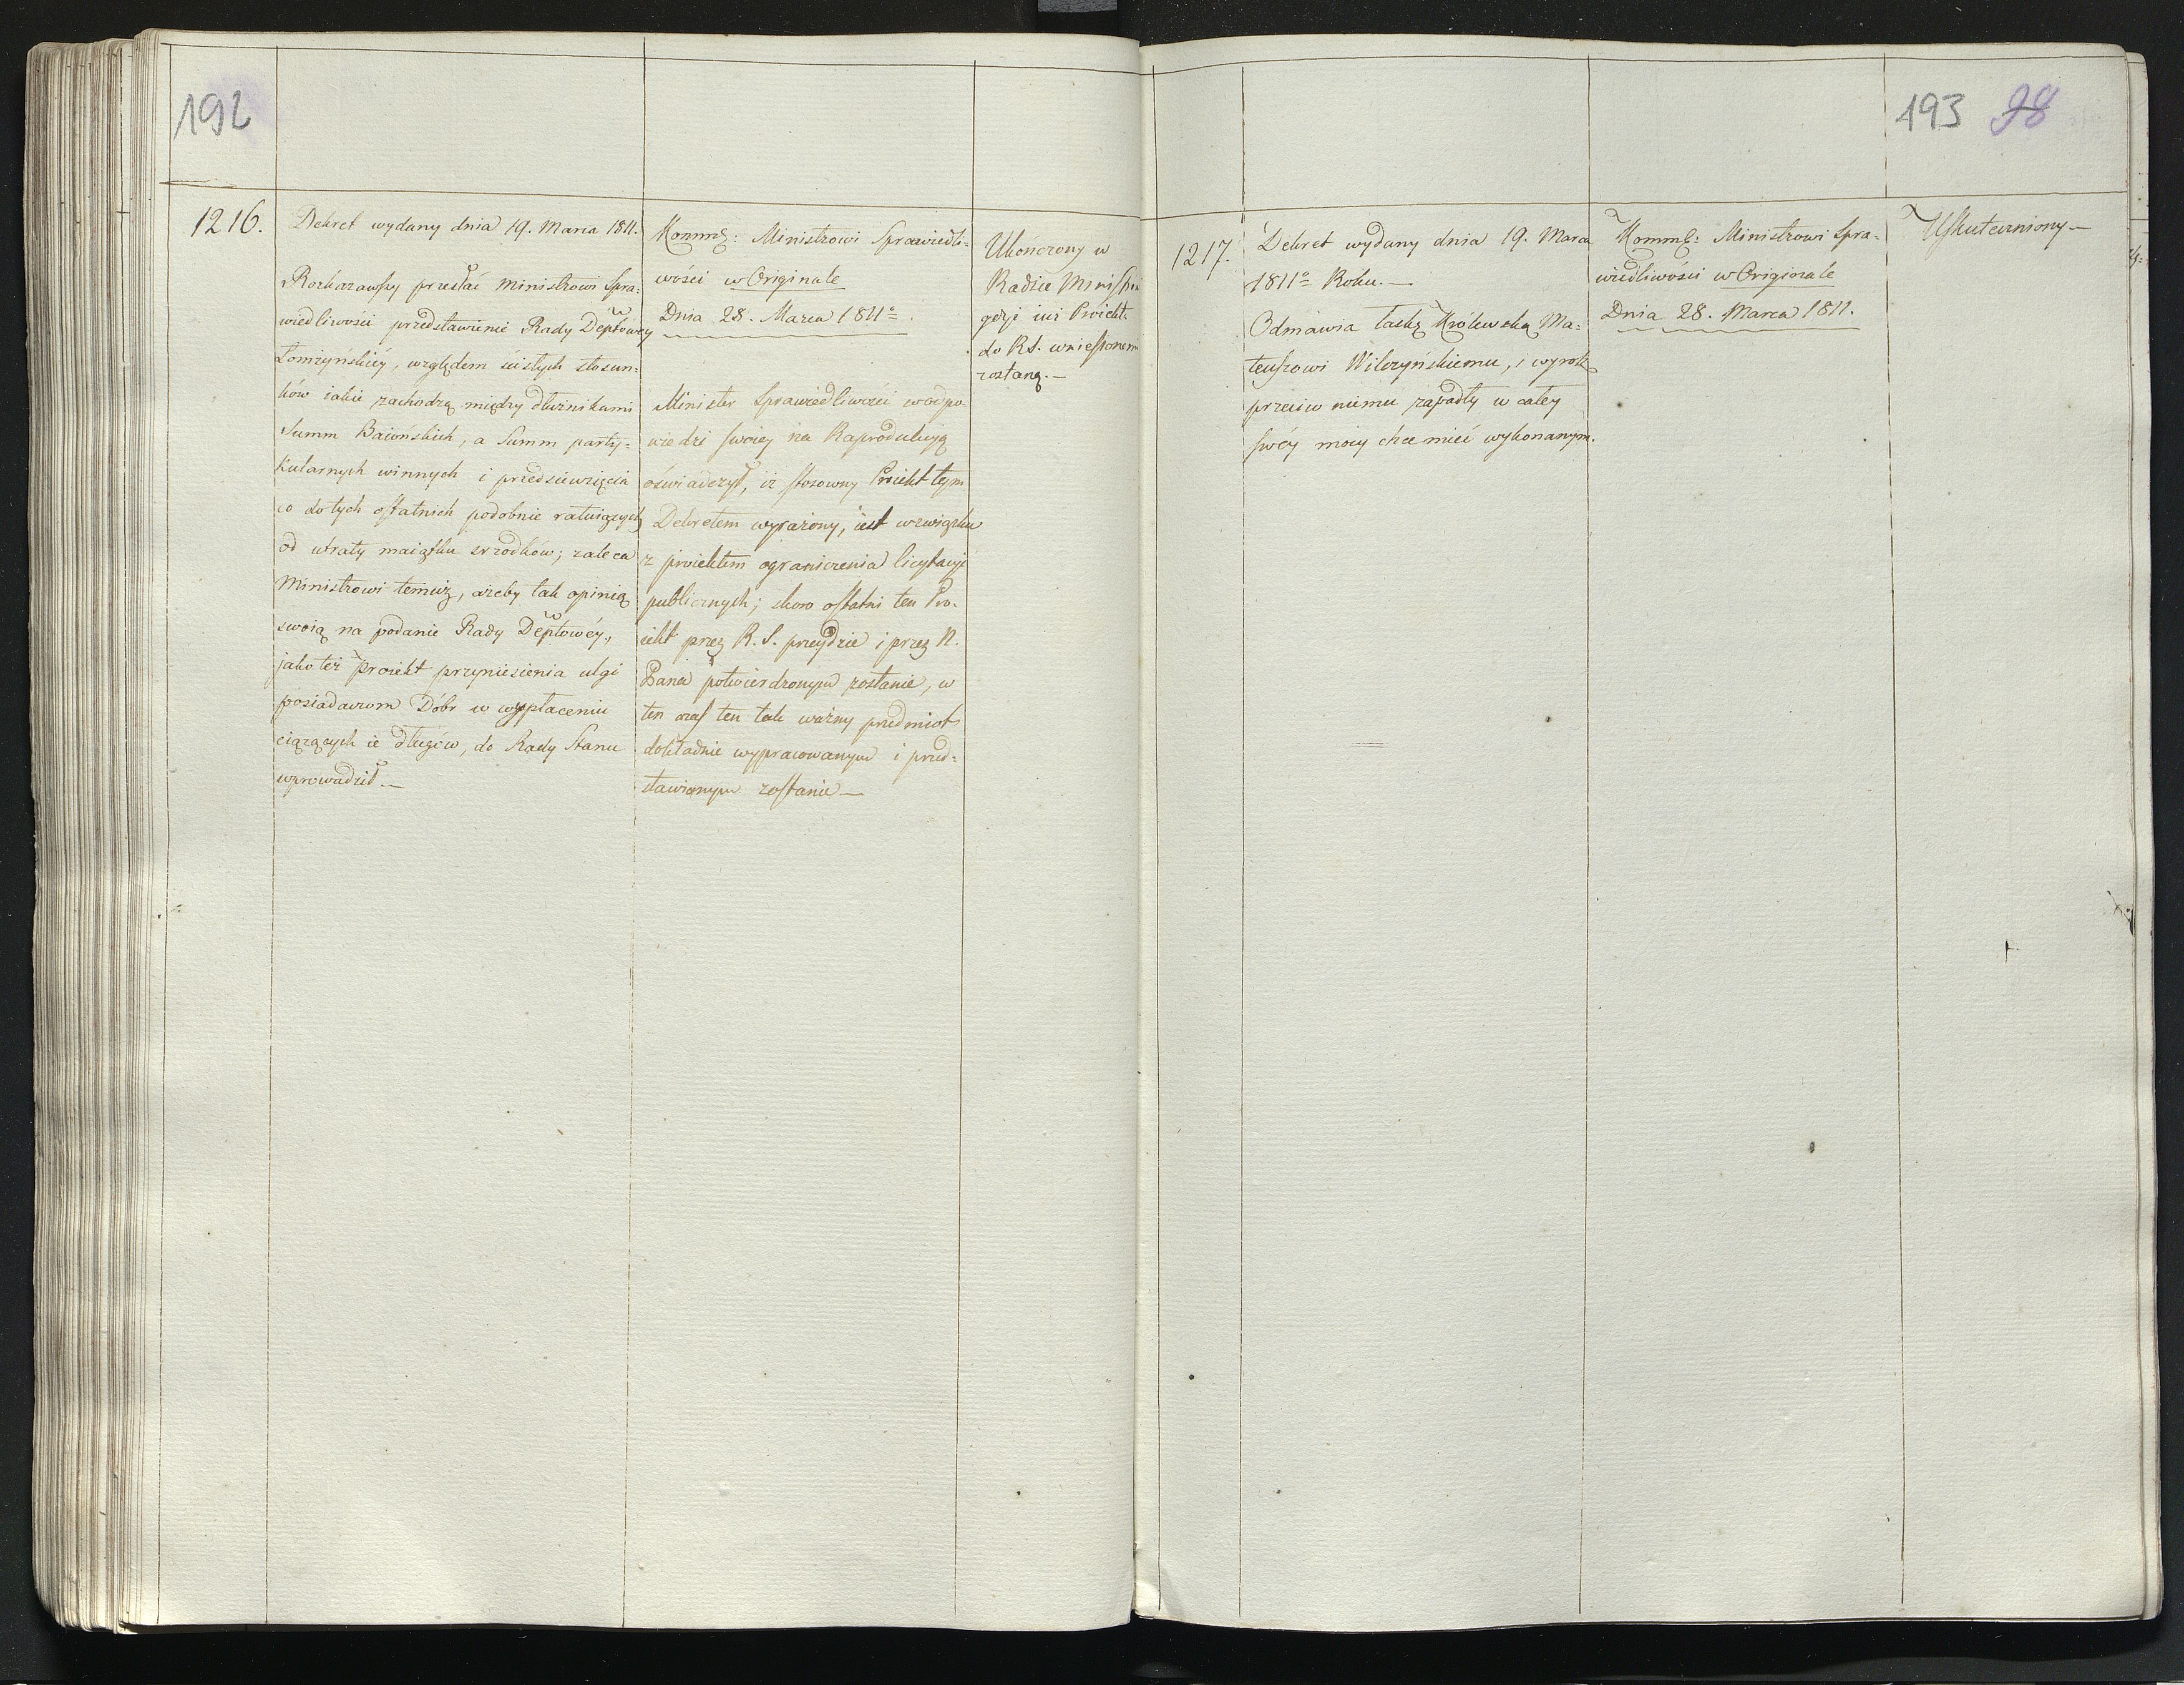 192
1216.
Dekret wydany dnia 19. Marca 1811.
Rozkazawszy przesłać Ministrowi Spra=
wiedliwości przedstawienie Rady Deptowey
Łomżyńskiéy, względem ścisłych stosun=
ków iakie zachodzą między dłużnikami
Summ Baiońskich, a Summ party=
kularnych winnych i przedsiewzięcia
co do tych ostatnich podobnie ratuiących
od utraty maiątku srzodków; zaleca
Ministrowi temuż, ażeby tak opinią
swoią na podanie Rady Deptowéy,
jako też Proiekt przyniesienia ulgi
posiadaczom Dóbr w wypłaceniu
ciążących ie długów, do Rady Stanu
wprowadził.—
Kommę: Ministrowi Sprawiedli=
wości w Originale
Dnia 28. Marca 1811o.
Minister Sprawiedliwości w odpo=
wiedzi swoiey na Raprodukcyą
oświadczył, iż stosowny Proiekt tym
Dekretem wyrażony, iest w związku
z proiektem ograniczenia licytacyi
publicznych; skoro ostatni ten Pro=
iekt przez R. S. przeydzie i przez N.
Pana potwierdzonym zostanie, w
ten czas ten tak ważny przedmiot
dokładnie wypracowanym i przed=
stawionym zostanie—
Ukończony w
Radzie Minist
gdyż iuż Proiekt
do RS. wniesionem
zostaną.—
193 98
1217.
Dekret wydany dnia 19. Marca
1811o Roku.—
Odmawia łaskę Królewską Ma=
teuszowi Wilczyńskiemu, i wyrok
przeciw niemu zapadły w całey
swéy mocy chce mieć wykonanym.
Kommę: Ministrowi Spra=
wiedliwości w Originale
Dnia 28. Marca 1811.
Uskuteczniony—